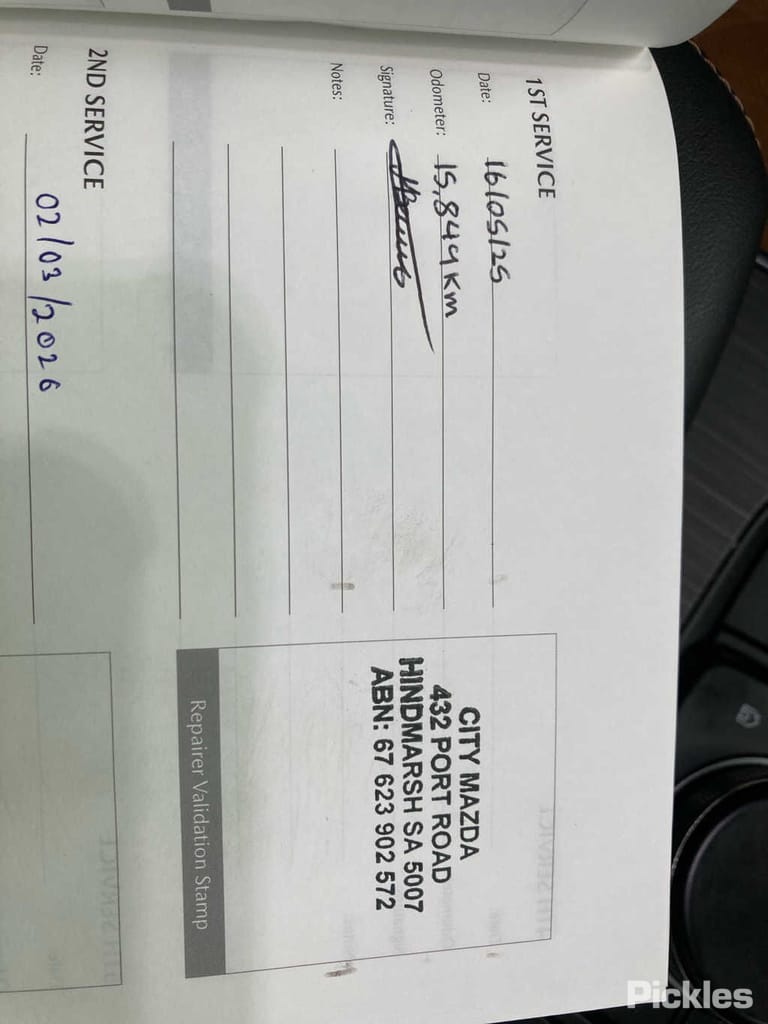 1ST SERVICE
Date: 16/05/25
Odometer: 15,844 Km
Signature:
Notes:
CITY MAZDA
432 PORT ROAD
HINDMARSH SA 5007
ABN: 67 623 902 572
Repairer Validation Stamp
2ND SERVICE
Date: 02/03/2026
Pickles